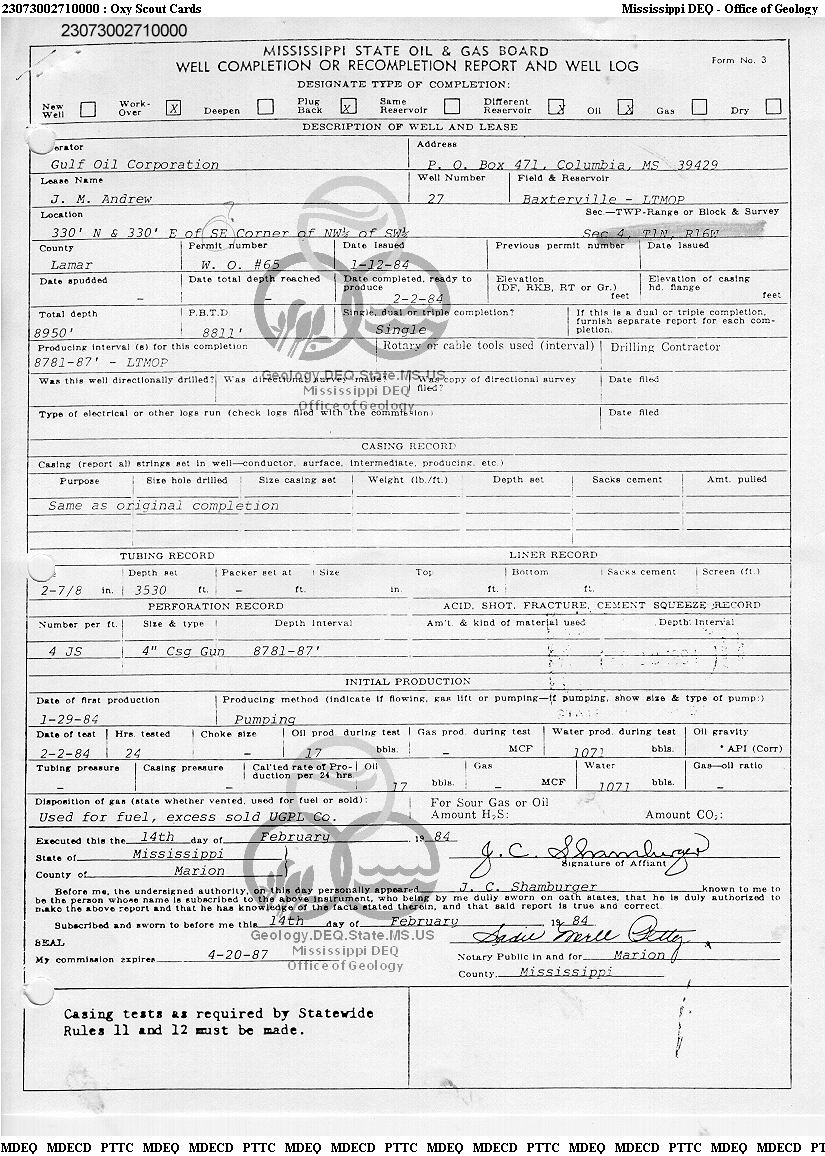 23073002710000 : Oxy Scout Cards Mississippi DEQ - Office of Geology
23073002710000
MISSISSIPPI STATE OIL & GAS BOARD
WELL COMPLETION OR RECOMPLETION REPORT AND WELL LOG Form No. 3
DESIGNATE TYPE OF COMPLETION:
New Well Work-Over X Deepen Plug Back X Same Reservoir Different Reservoir X Oil X Gas Dry
DESCRIPTION OF WELL AND LEASE
erator Address
Gulf Oil Corporation P. O. Box 471, Columbia, MS 39429
Lease Name Well Number Field & Reservoir
J. M. Andrew 27 Baxterville - LTMOP
Location Sec.—TWP-Range or Block & Survey
330' N & 330' E of SE Corner of NW¼ of SW¼ Sec 4, T1N, R16W
County Permit number Date Issued Previous permit number Date Issued
Lamar W. O. #65 1-12-84
Date spudded Date total depth reached Date completed, ready to produce Elevation (DF, RKB, RT or Gr.) feet Elevation of casing hd. flange feet
- - 2-2-84
Total depth P.B.T.D. Single, dual or triple completion? If this is a dual or triple completion, furnish separate report for each completion.
8950' 8811' Single
Producing interval (s) for this completion Rotary or cable tools used (interval) Drilling Contractor
8781-87' - LTMOP
Was this well directionally drilled? Was directional survey made? Was copy of directional survey filed? Date filed
Geology.DEQ.State.MS.US
Mississippi DEQ
Office of Geology
Type of electrical or other logs run (check logs filed with the commission) Date filed
CASING RECORD
Casing (report all strings set in well—conductor, surface, intermediate, producing, etc.)
Purpose Size hole drilled Size casing set Weight (lb./ft.) Depth set Sacks cement Amt. pulled
Same as original completion
TUBING RECORD LINER RECORD
Depth set Packer set at Size Top Bottom Sacks cement Screen (ft.)
2-7/8 in. 3530 ft. - ft. in. ft. ft.
PERFORATION RECORD ACID, SHOT, FRACTURE, CEMENT SQUEEZE RECORD
Number per ft. Size & type Depth Interval Am't. & kind of material used Depth Interval
4 JS 4" Csg Gun 8781-87'
INITIAL PRODUCTION
Date of first production Producing method (indicate if flowing, gas lift or pumping—if pumping, show size & type of pump:)
1-29-84 Pumping
Date of test Hrs. tested Choke size Oil prod. during test Gas prod. during test Water prod. during test Oil gravity
2-2-84 24 - 17 bbls. - MCF 1071 bbls. ° API (Corr)
Tubing pressure Casing pressure Cal'ted rate of Production per 24 hrs. Oil Gas Water Gas—oil ratio
- - 17 bbls. - MCF 1071 bbls. -
Disposition of gas (state whether vented, used for fuel or sold): For Sour Gas or Oil
Used for fuel, excess sold UGPL Co. Amount H₂S: Amount CO₂:
Executed this the 14th day of February 19 84
State of Mississippi J. C. Shamburger
County of Marion Signature of Affiant
Before me, the undersigned authority, on this day personally appeared J. C. Shamburger known to me to
be the person whose name is subscribed to the above instrument, who being by me duly sworn on oath states, that he is duly authorized to
make the above report and that he has knowledge of the facts stated therein, and that said report is true and correct.
Subscribed and sworn to before me this 14th day of February 19 84
Geology.DEQ.State.MS.US
SEAL
Mississippi DEQ
My commission expires 4-20-87 Notary Public in and for Marion
Office of Geology
County, Mississippi
Casing tests as required by Statewide
Rules 11 and 12 must be made.
MDEQ MDECD PTTC MDEQ MDECD PTTC MDEQ MDECD PTTC MDEQ MDECD PTTC MDEQ MDECD PTTC MDEQ MDECD PT